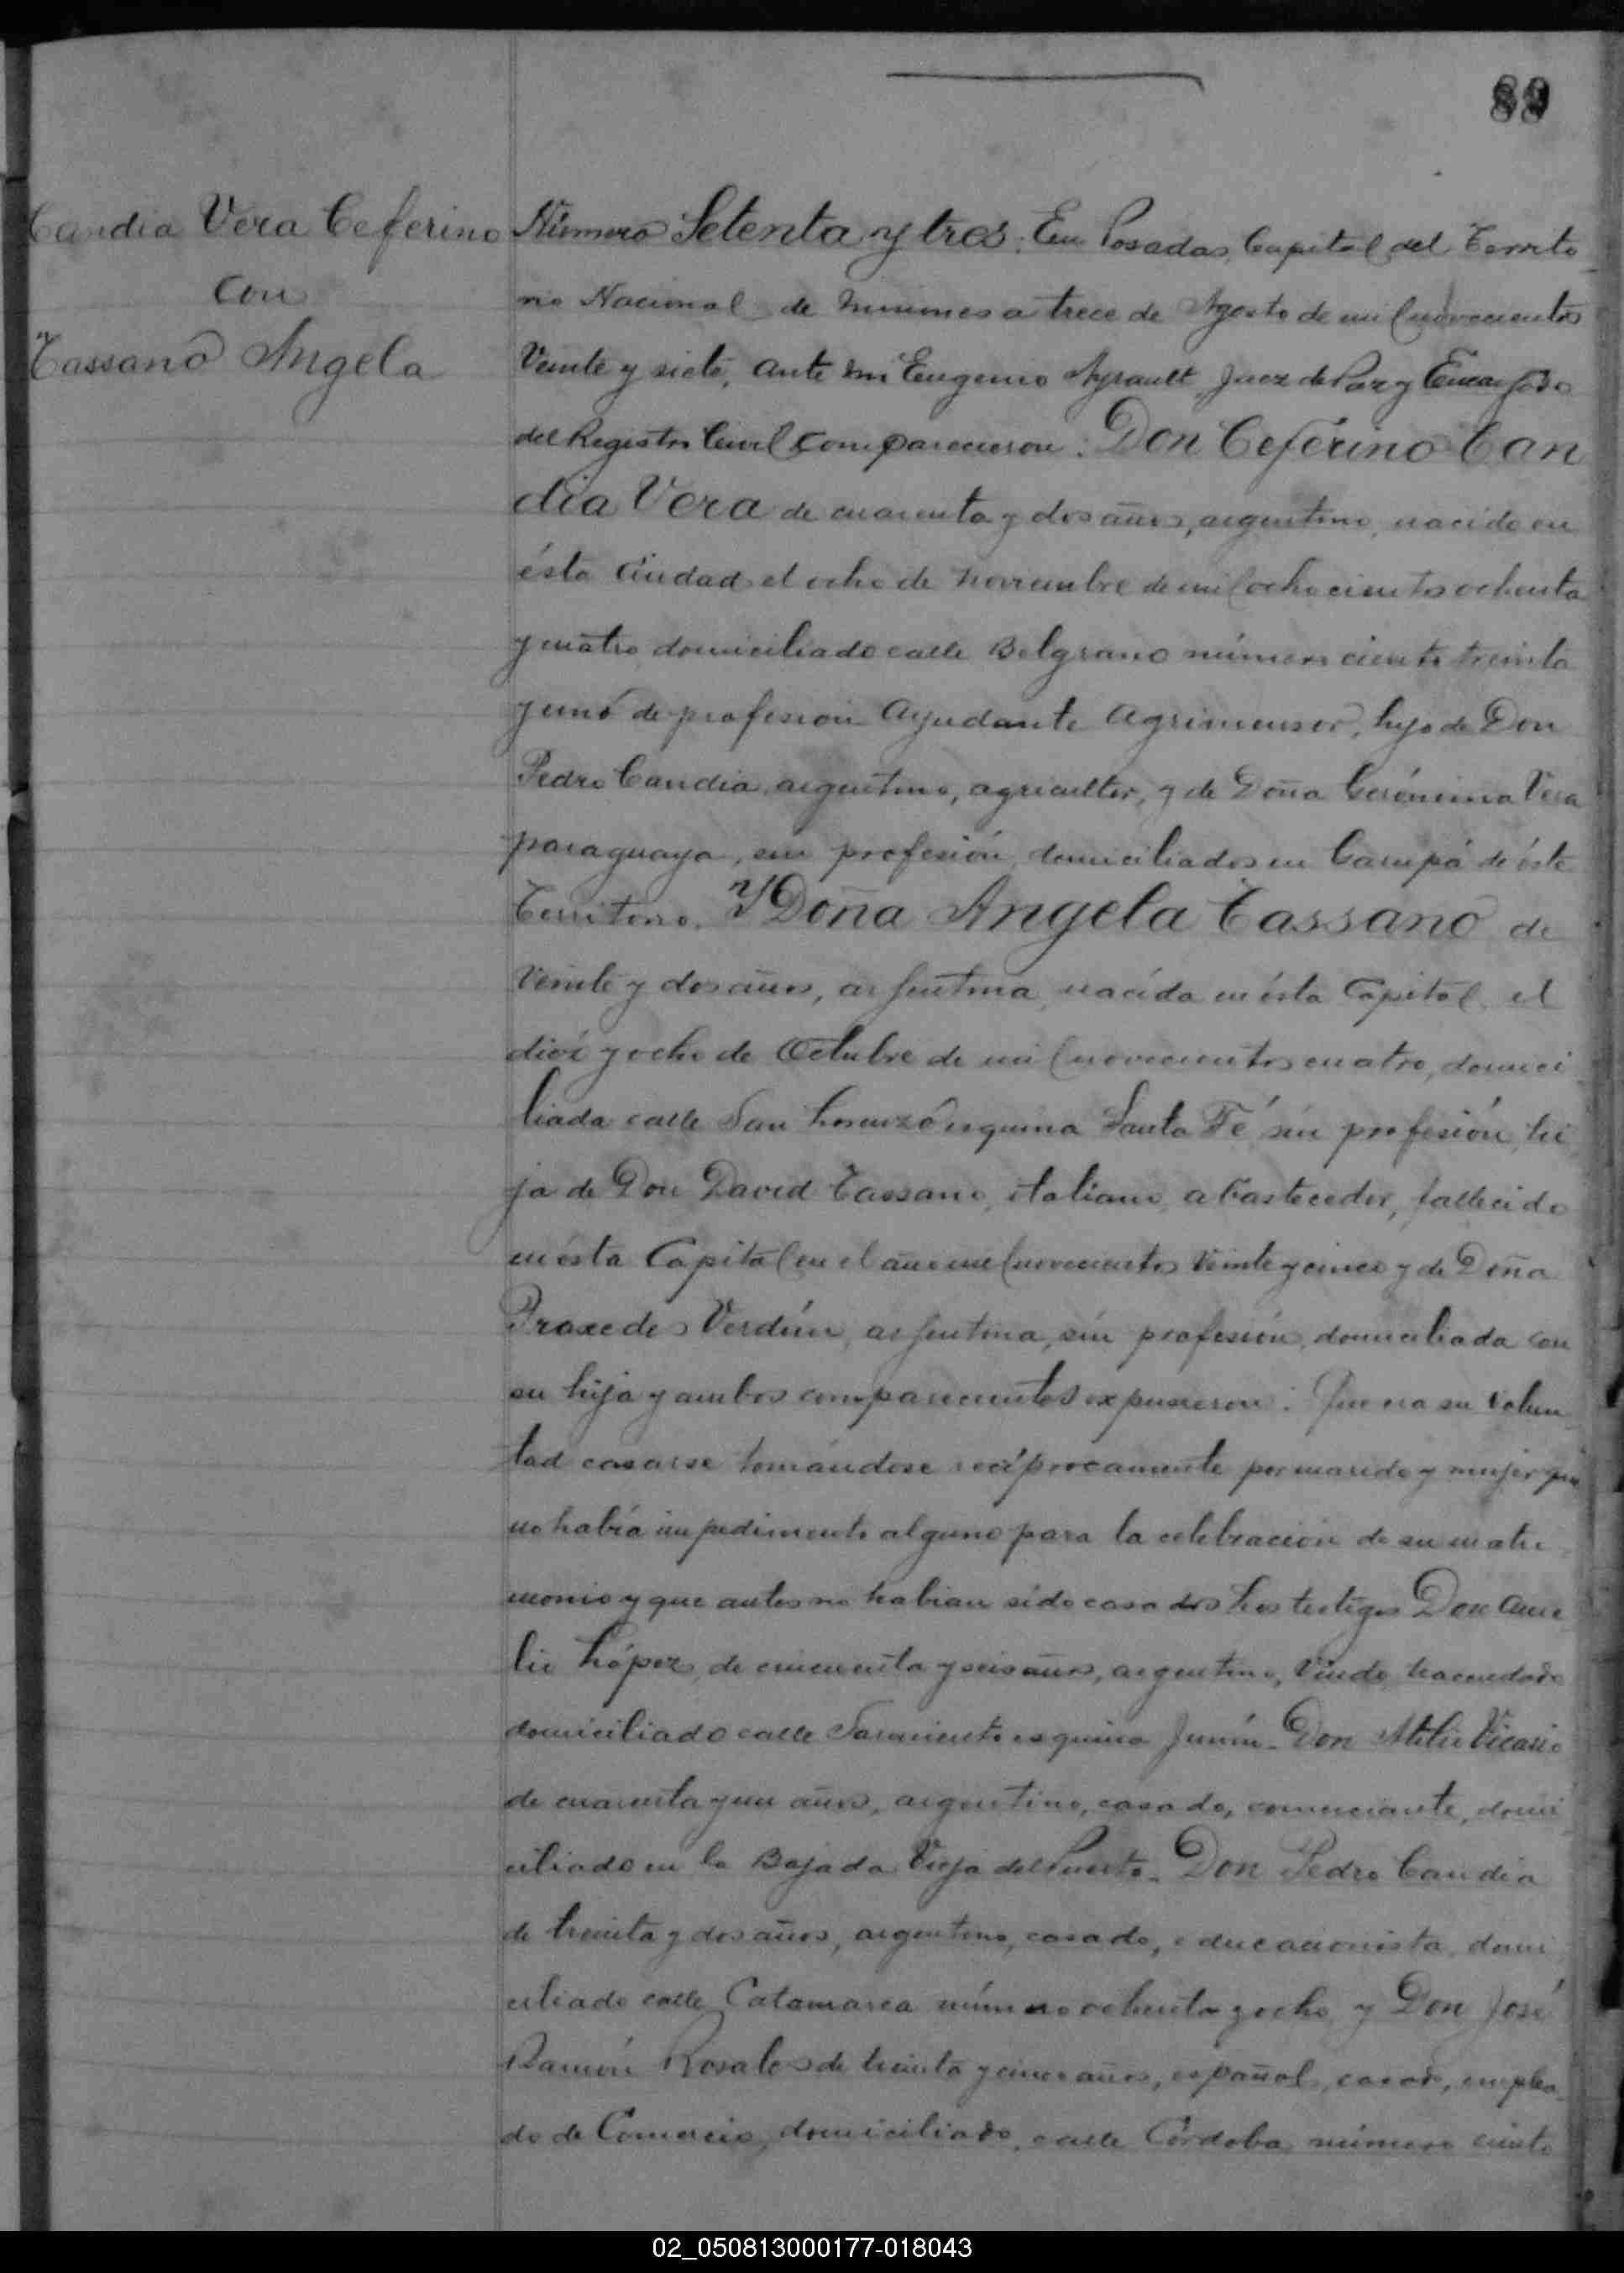 89
Candia Vera Ceferino
con
Tassano Angela
Número Setenta y tres. En Posadas, Capital del Territo
rio Nacional de Misiones a trece de Agosto de mil novecientos
Veinte y siete, ante mi Eugenio Ayrault, Juez de Paz y Encargado
del Registro Civil comparecieron: Don Ceferino Can
dia Vera de cuarenta y dos años, argentino, nacido en
ésta Ciudad el ocho de Noviembre de mil ochocientos ochenta
y cuatro domiciliado calle Belgrano número ciento treinta
y uno de profesión Ayudante Agrimensor, hijo de Don
Pedro Candia, argentino, agricultor, y de Doña Gerónima Vera
paraguaya, sin profesión, domiciliados en Garupá de éste
Territorio. Y Doña Angela Tassano de
Veinte y dos años, argentina, nacida en ésta Capital, el
diez y ocho de Octubre de mil novecientos cuatro, domici
liada calle San Lorenzo esquina Santa Fé, sin profesión, hi
ja de Don David Tassano, italiano, abastecedor, fallecido
en ésta Capital en el año mil novecientos veinte y cinco y de Doña
Praxedes Verdún, argentina, sin profesión, domiciliada con
su hija y ambos comparecientes expusieron: Que era su volun
tad casarse tomándose recíprocamente por marido y mujer que
no había impedimento alguno para la celebración de su matri
monio y que antes no habian sido casados Los testigos Don Aure
lio López, de cincuenta y seis años, argentino, viudo, hacendado
domiciliado calle Sarmiento esquina Junín - Don Atilio Vicario
de cuarenta y un años, argentino, casado, comerciante, domi
ciliado en la Bajada Vieja del Puerto - Don Pedro Candia
de treinta y dos años, argentino, casado, educacionista, domi
ciliado calle Catamarca número ochenta y ocho y Don José
Ramón Rosales de treinta y cinco años, español, casado, emplea
do de Comercio, domiciliado, calle Córdoba número ciento
02_050813000177-018043